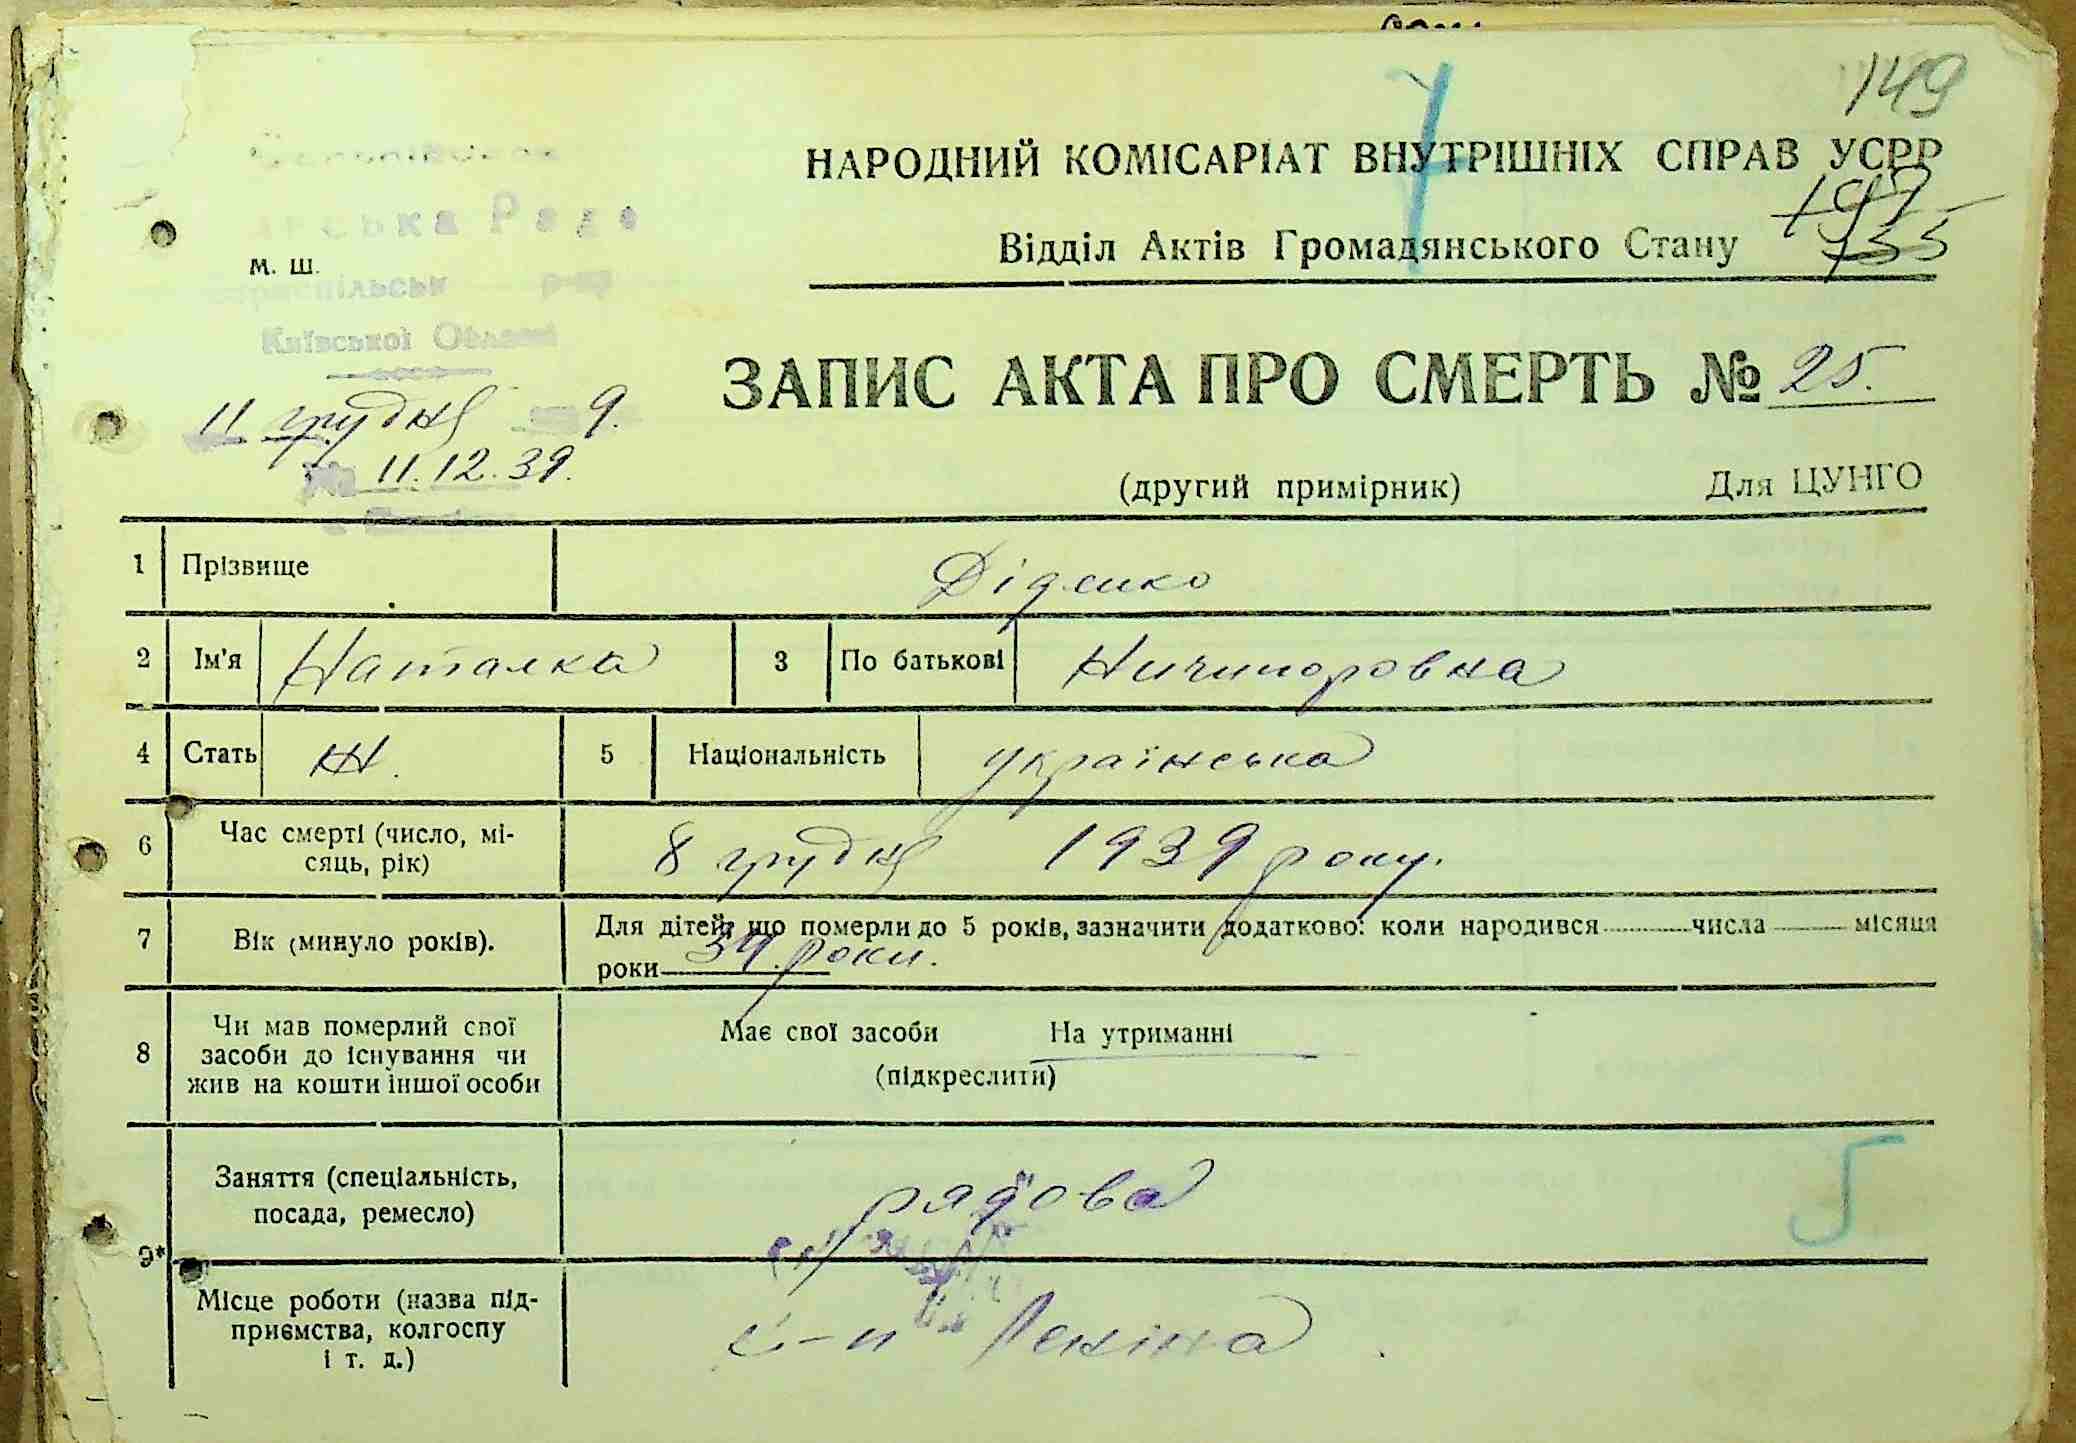 149
НАРОДНИЙ КОМІСАРІАТ ВНУТРІШНІХ СПРАВ УСРР
Рада
М. Ш.
Відділ Актів Громадянського Стану
155
Київської Області
ЗАПИС АКТА ПРО СМЕРТЬ № 25.
11 грудня 9.
№ 11.12.39.
(другий примірник) Для ЦУНГО
1 Прізвище Діденко
2 Ім'я Наталка 3 По батькові Ничипоровна
4 Стать Ж. 5 Національність українська
6 Час смерті (число, мі-
сяць, рік) 8 грудня 1939 року.
7 Вік (минуло років). Для дітей, що померли до 5 років, зазначити додатково: коли народився числа місяця
роки 34 роки.
8 Чи мав померлий свої
засоби до існування чи
жив на кошти іншої особи
Має свої засоби На утриманні
(підкреслити)
9*
Заняття (спеціальність,
посада, ремесло) рядова
Місце роботи (назва під-
приємства, колгоспу
і т. д.) Леніна
5